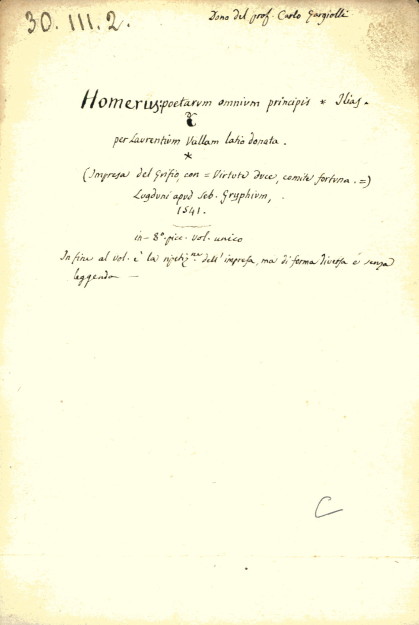 30. III. 2.
Dono del prof. Carlo Gargiolli
Homerus: poetarum omnium principis * Ilias.
per Laurentium Vallam latio donata.
*
(Impresa del Grifio, con = Virtute duce, comite fortuna. =)
Lugduni apud Seb. Gryphium,
1541.
in-8º. picc. vol. unico
In fine al vol. è la ripetizne. dell'impresa, ma di forma diversa e senza
leggenda —
C